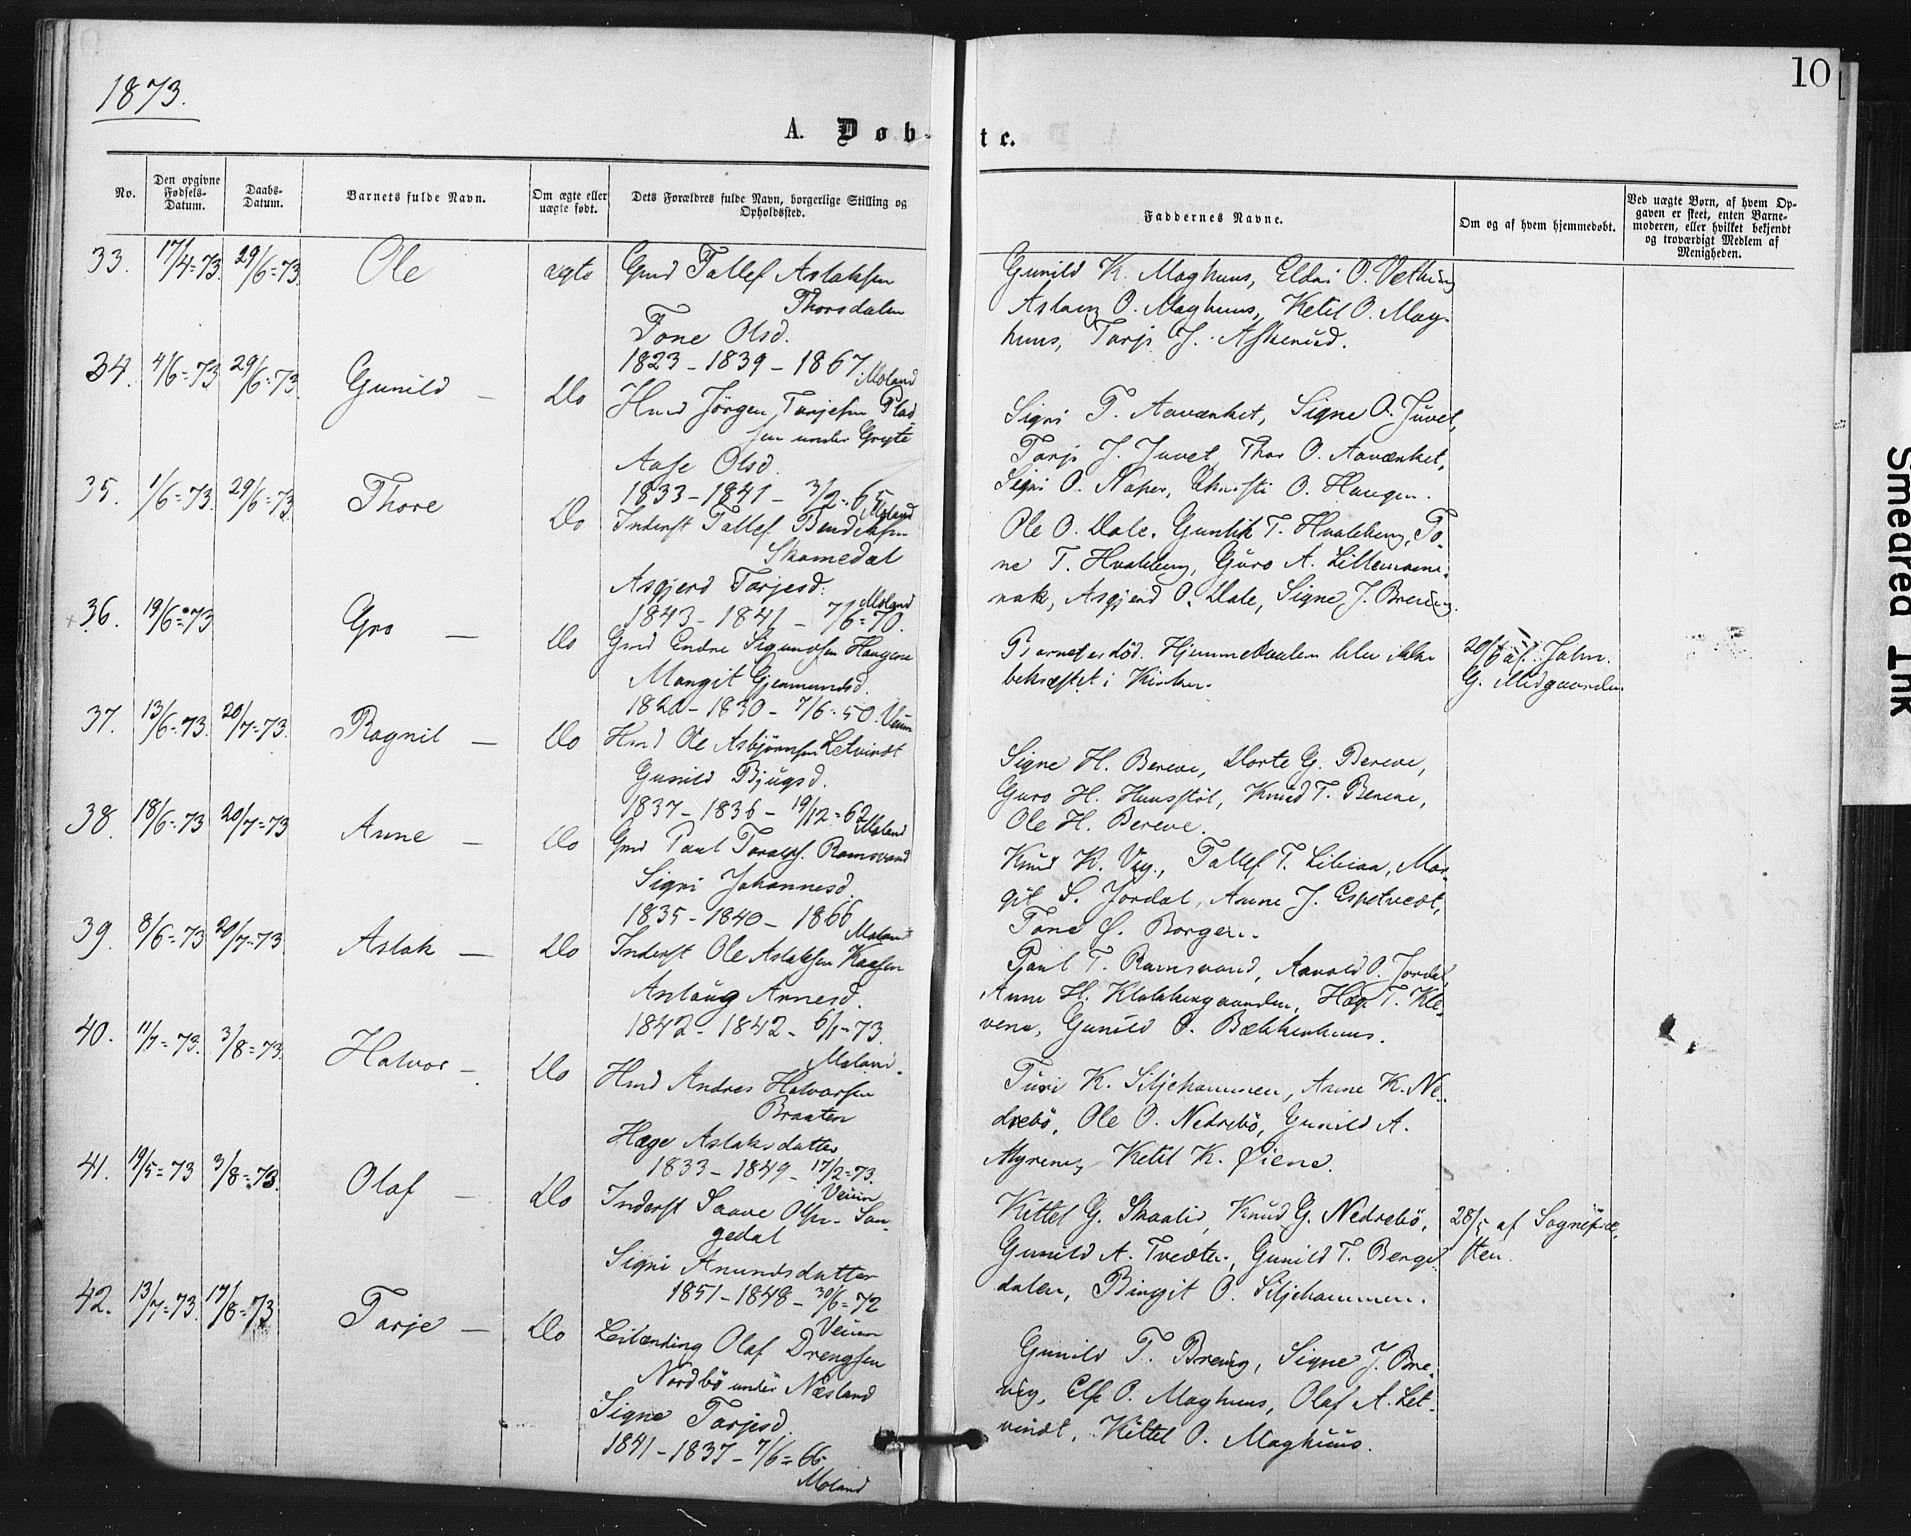 1873.
10
A. Døb-
te.
No.
Den opgivne Fødsels-Datum.
Daabs-Datum.
Barnets fulde Navn.
Om ægte eller uægte født.
Dets Forældres fulde Navn, borgerlige Stilling og Opholdssted.
Faddernes Navne.
Om og af hvem hjemmedøbt.
Ved uægte Børn, af hvem Opgaven er skeet, enten Barnemoderen, eller hvilket bekjendt og troværdigt Medlem af Menigheden.
33. 17/4=73. 29/6=73. Ole ægte Gmd Tallef Aslaksen
Thorsdalen
Tone Olsd.
1823 - 1839 - 1867.
Moland
Gunild K. Maghuus, O. Vething
Aslaug O. Maghuus, Ketil O. Mag-
huus, Tarje J. Askerud.
34. 4/6=73 29/6=73. Gunild - Do Hmd Jörgen Tarjesen Plad
sen under Gryte
Aase Olsd.
1833 - 1841 - 3/2=65
Moland
Sigri T. Aavænket, Signe O. Juvet,
Tarje J. Juvet, Thor O. Aavænket,
Sigri O. Naper, Christi O. Haugen.
35. 1/6=73. 29/6=73. Thore Do Inderst Tallef Bendiksen
Skomedal
Asgjerd Tarjesd.
1843 - 1841 - 7/6=70.
Moland
Ole O. Dale, Gunlik T. Hvalberg, To-
ne T. Hvalberg, Guro A.
nak, Asgjerd O. Dale, Signe J. Brevig.
+36. 19/6=73 Gro - Do Gmd Endre Sigurdsen Haugene
Margit Gjermundsd.
1820 - 1830 - 7/6=50. Veum
Barnet er död. Hjemmedaaben blev ikke
bekræftet i Kirken.
20/6 af John.
G. Midgaarden
37. 13/6=73. 20/7=73. Ragnil - Do Hmd Ole Asbjörnsen Letvindt
Gunild Bjugsd.
1837 - 1836 - 19/12=62
Moland
Signe H. Bereve, Dorte G. Bereve,
Guro H. Huusstöl, Knud T. Bereve,
Ole H. Bereve.
38. 18/6=73 20/7=73 Anne - Do Gmd Paul Toralfs. Ramsvand
Sigri Johannesd.
1835 - 1840 - 1866
Moland
Knud K. Vig, Tallef T. Libiaa, Mar-
git S. Jordal, Anne J. Espetvedt,
Tone Borgen.
39. 8/6=73 20/7=73 Aslak - Do Inderst Ole Aslaksen Kaasen
Aslaug Arnesd.
1842 - 1842 - 6/1=73.
Moland.
Paul T. Ramsvand, Aavold O. Jordal,
Anne H. Klokkergaarden, Hæge T. Kle-
vene, Gunild O. Bækkenhuus.
40. 11/7=73. 3/8=73. Halvor - Do Hmd Andres Halvorsen
Braaten
Hæge Aslaksdatter
1833 - 1849 - 17/2=73.
Veum
Turi K. Siljehammen, Anne K. Ne-
drebö, Ole O. Nedrebö, Gunild A.
Myrene, Ketil K. Øiene.
41. 19/5=73 3/8=73. Olaf - Do Inderst Saave Olsen San-
gedal
Sigri Anundsdatter
1851 - 1848 - 30/6=72
Veum
Kittel G. Skaalid, Knud G. Nedrebö,
Gunild A. Tvedten, Gunild T. Berge-
dalen, Birgit O. Siljehammen.
28/5 af Sognepræ-
sten
42. 13/7=73. 17/8=73 Tarje - Do Leilænding Olaf Drengsen
Nordbö under Næsland
Signe Tarjesd.
1841 - 1837 - 7/6=66.
Moland
Gunild T. Brevig, Signe J. Bre-
vig, O. Maghuus, Olaf A. Let-
vindt, Kittel O. Maghuus.
Smeared Ink